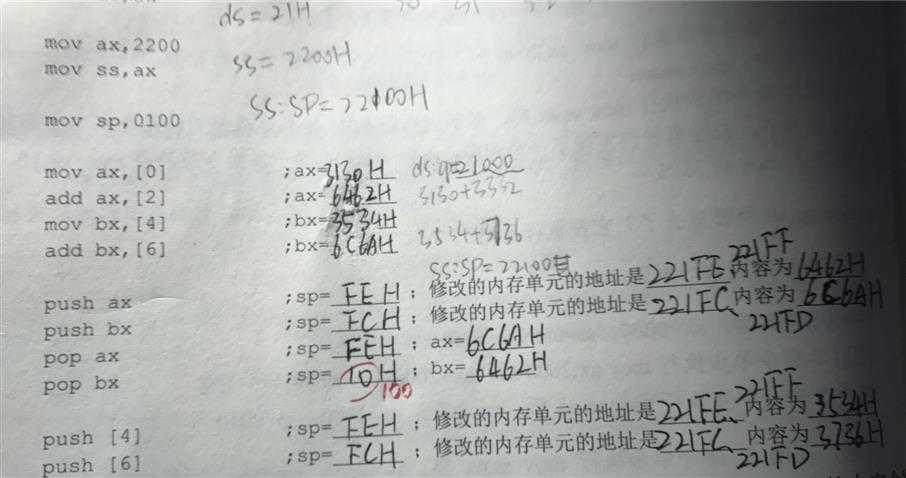 ds=21H
mov ax,2200
mov ss,ax ss=2200H
ss:sp=22100H
mov sp,0100
mov ax,[0] ;ax=3130H ds:q=21000
add ax,[2] ;ax=6462H 3130+3332
mov bx,[4] ;bx=3534H
add bx,[6] ;bx=6C6AH 3534+3736
ss:sp=22100H 221FF
push ax ;sp= FEH ;修改的内存单元的地址是221FE、内容为6462H
push bx ;sp= FCH ;修改的内存单元的地址是221FC、内容为6C6AH
221FD
pop ax ;sp= FEH ;ax=6C6AH
pop bx ;sp= 10H ;bx=6462H
100
221FF
push [4] ;sp= FEH ;修改的内存单元的地址是221FE、内容为3534H
push [6] ;sp= FCH ;修改的内存单元的地址是221FC、内容为3736H
221FD